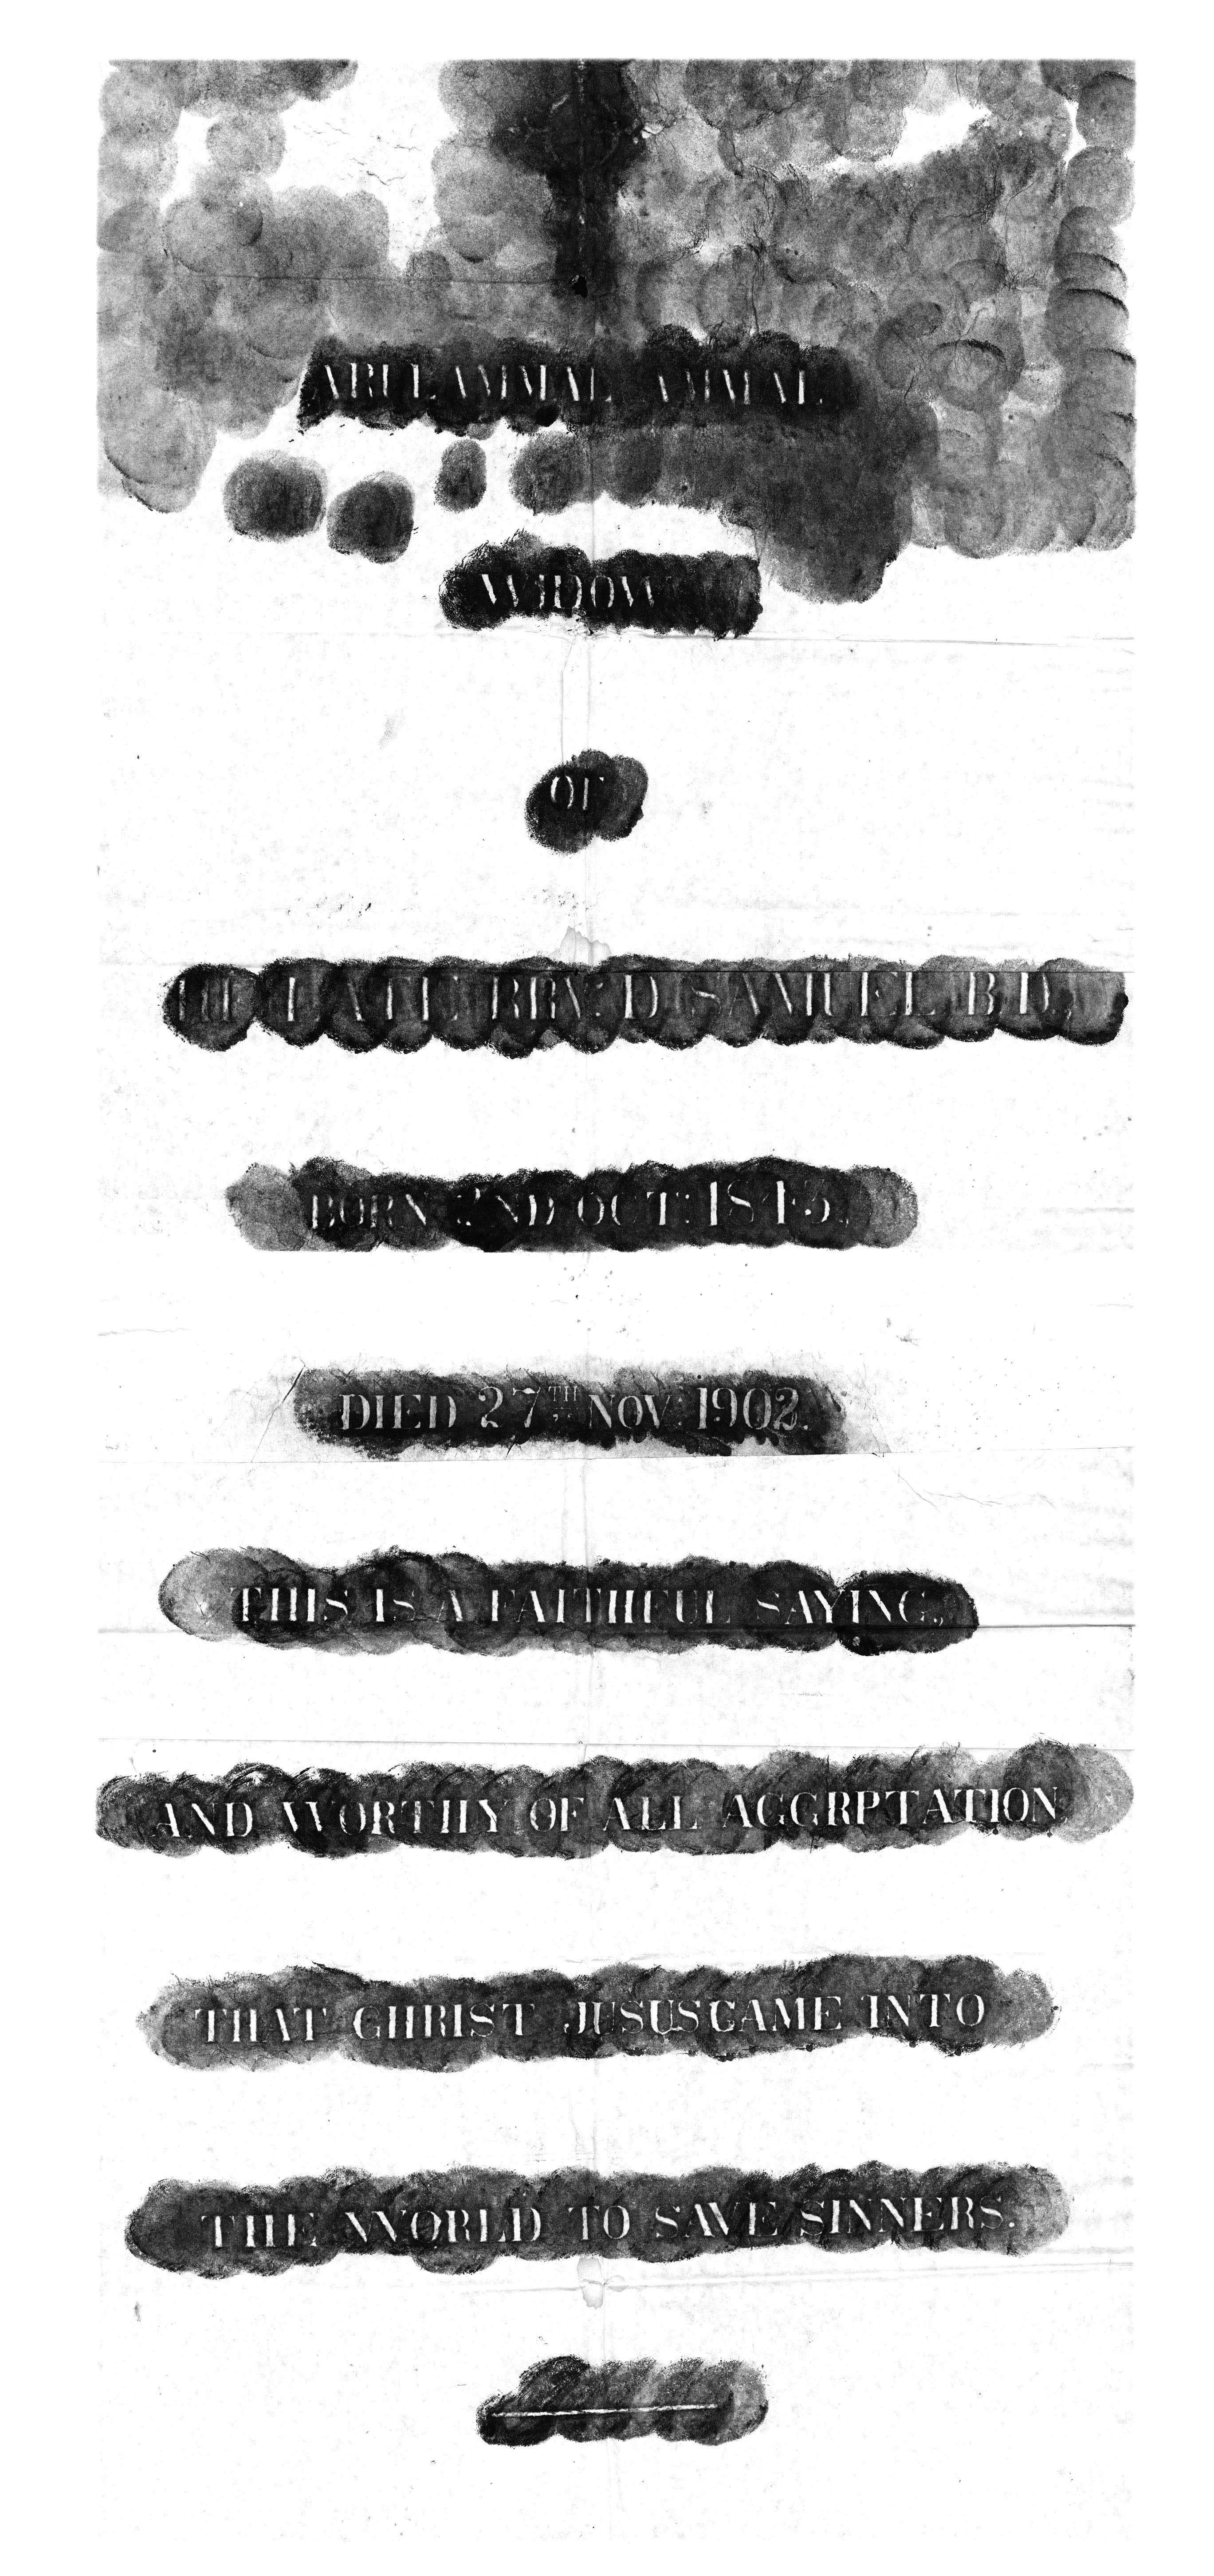 ARULAMMAL AMMAL
WIDOW
OF
THE LATE REV. D. SAMUEL B.D.,
BORN 2ND OCT: 1845.
DIED 27TH NOV: 1902.
THIS IS A FAITHFUL SAYING,
AND WORTHY OF ALL ACCRPTATION
THAT CHRIST JUSUS CAME INTO
THE WORLD TO SAVE SINNERS.